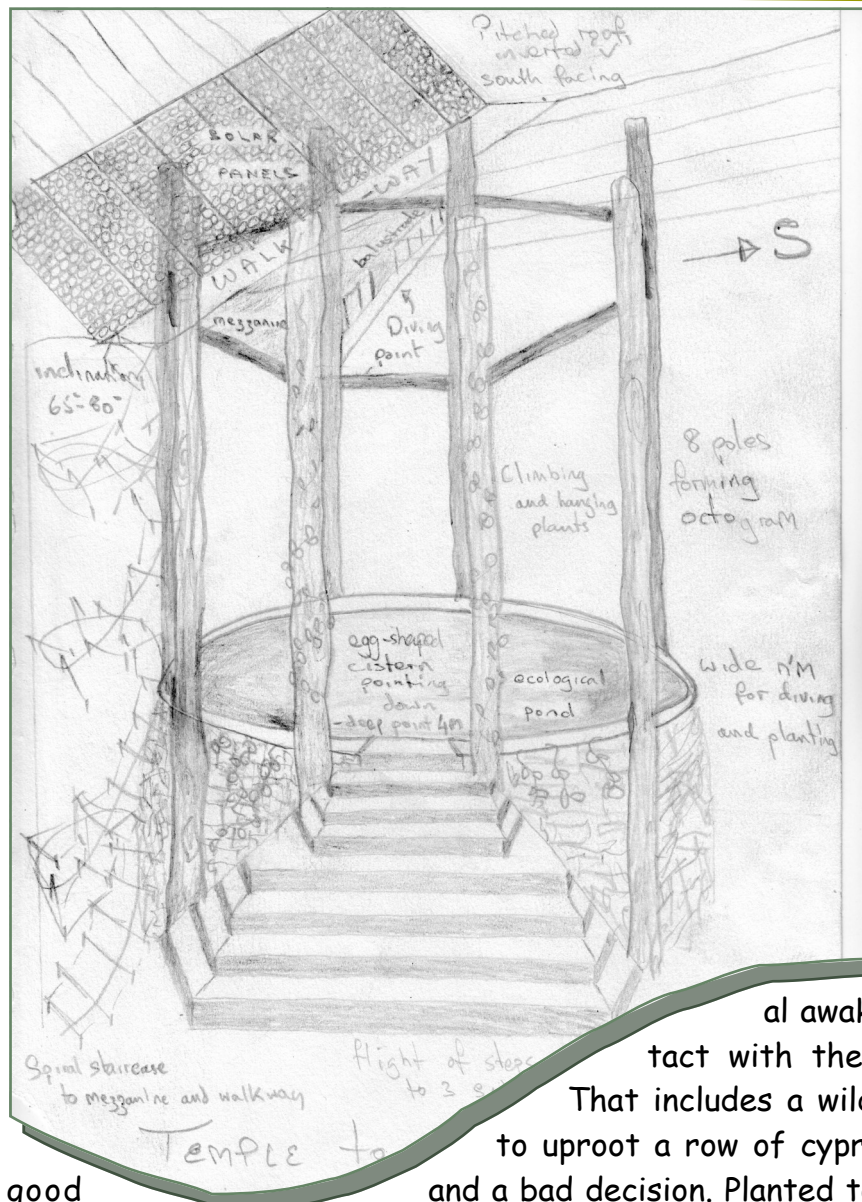 Pitched roof,
inverted v
south facing
SOLAR
PANELS
WALK-WAY
balustrade
mezzanine
Diving
point
S
inclination
65°-80°
8 poles
forming
octogram
Climbing
and hanging
plants
egg-shaped
cistern
pointing
down
-deep point 4M
ecological
pond
wide
for diving
and planting
Spiral staircase
to mezzanine and walkway
flight of steps
to 3
TEMPLE to
al awak
tact with the
That includes a wild
to uproot a row of cypr
good and a bad decision. Planted t